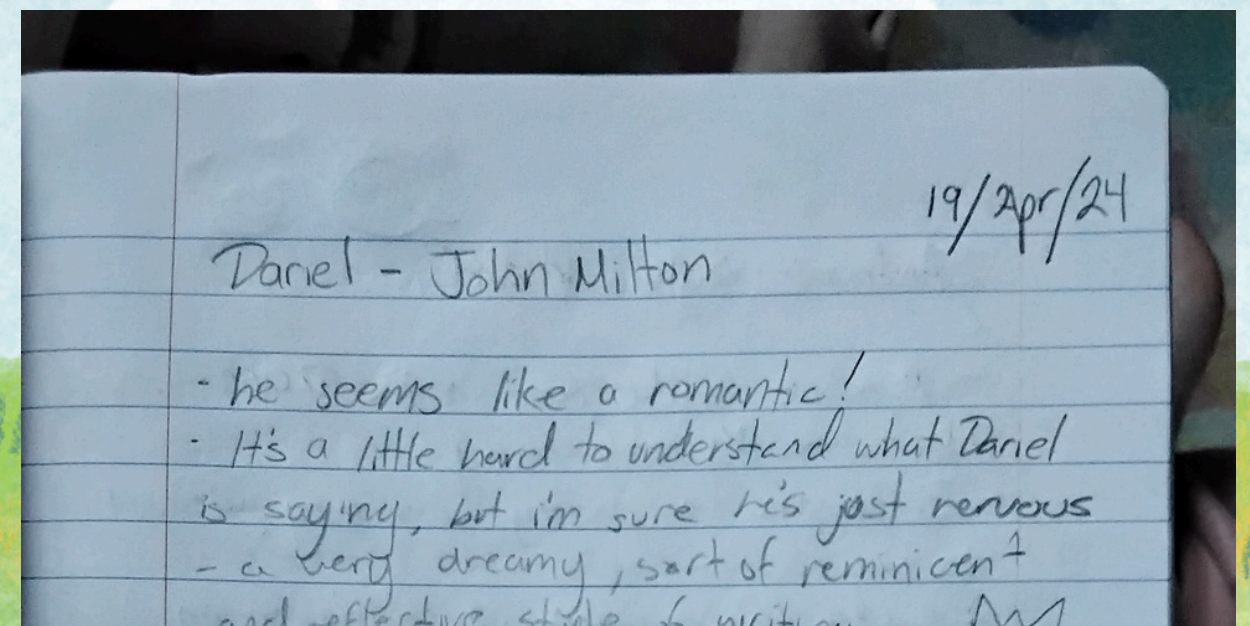 19/Apr/24
Dariel - John Milton
- he seems like a romantic!
- It's a little hard to understand what Dariel
is saying, but i'm sure he's just nervous
- a very dreamy, sort of reminicent
and effective style of writing